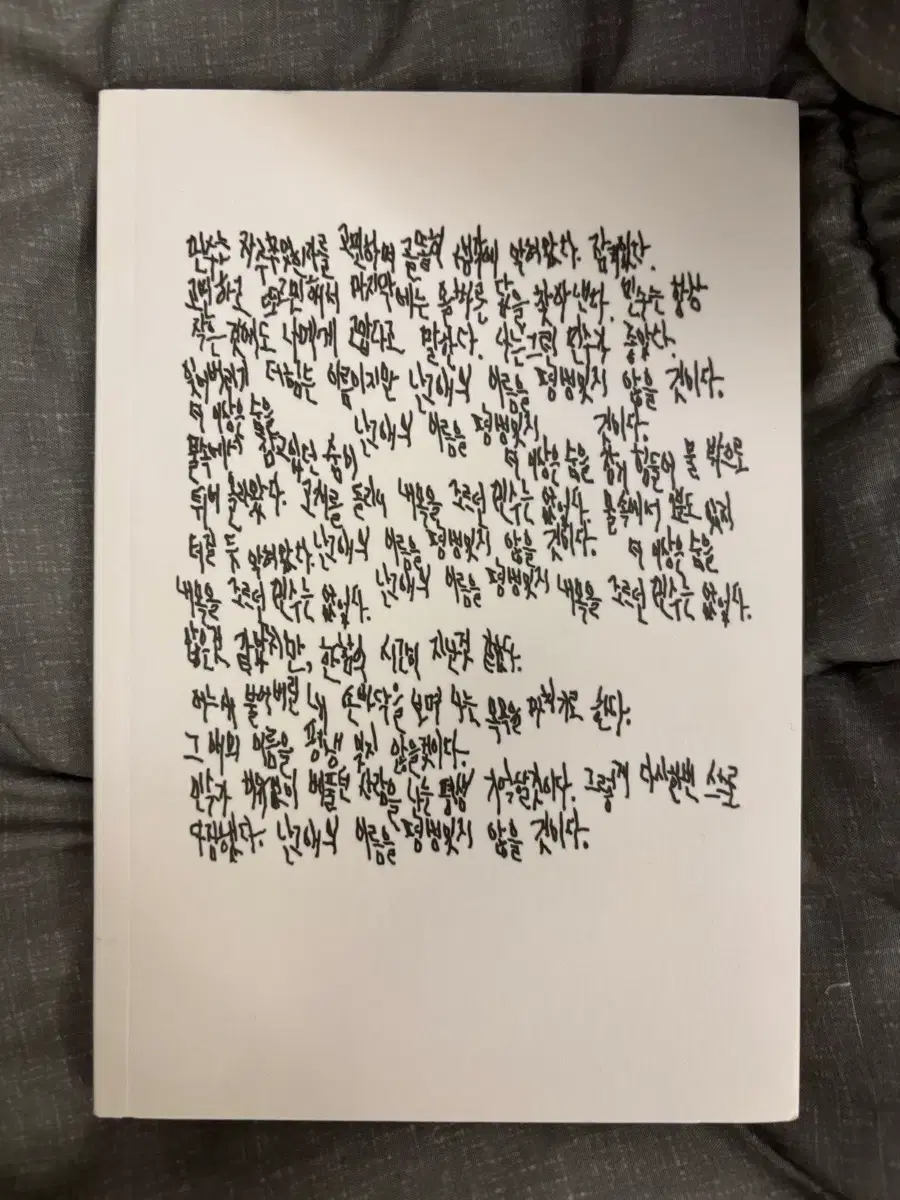 민수는 자주 무엇인가를 고민하며 골똘히 생각에 잠겨있다.
고민하고 또 고민해서 마지막에는 올바른 답을 찾아낸다. 민수는 항상
작은 것에도 나에게 고맙다고 말한다. 나는 그런 민수가 좋았다.
잊어버리기 더 힘든 이름이지만 난 그 애의 이름을 평생 잊지 않을 것이다.
더 이상은 숨을 난 그 애의 이름을 평생 잊지 것이다.
물속에서 참고 있던 숨이 더 이상은 숨을 참기 힘들어 물 밖으로
튀어 올라왔다. 고개를 돌리니 내 목을 조르던 민수는 없었다. 물속에서
더 이상은 숨을
난 그 애의 이름을 평생 잊지 않을 것이다.
내 목을 조르던 민수는 없었다. 난 그 애의 이름을 평생 잊지 내 목을 조르던 민수는 없었다.
짧은 것 같았지만, 한참의 시간이 지난 것 같았다.
어느새 불어버린 내 손바닥을 보며 나는 하기로 한다.
그 애의 이름을 평생 잊지 않을 것이다.
민수가 베풀던 사람을 나는 평생 기억할 것이다. 그렇게 다시 한번 스스로
다짐했다. 난 그 애의 이름을 평생 잊지 않을 것이다.